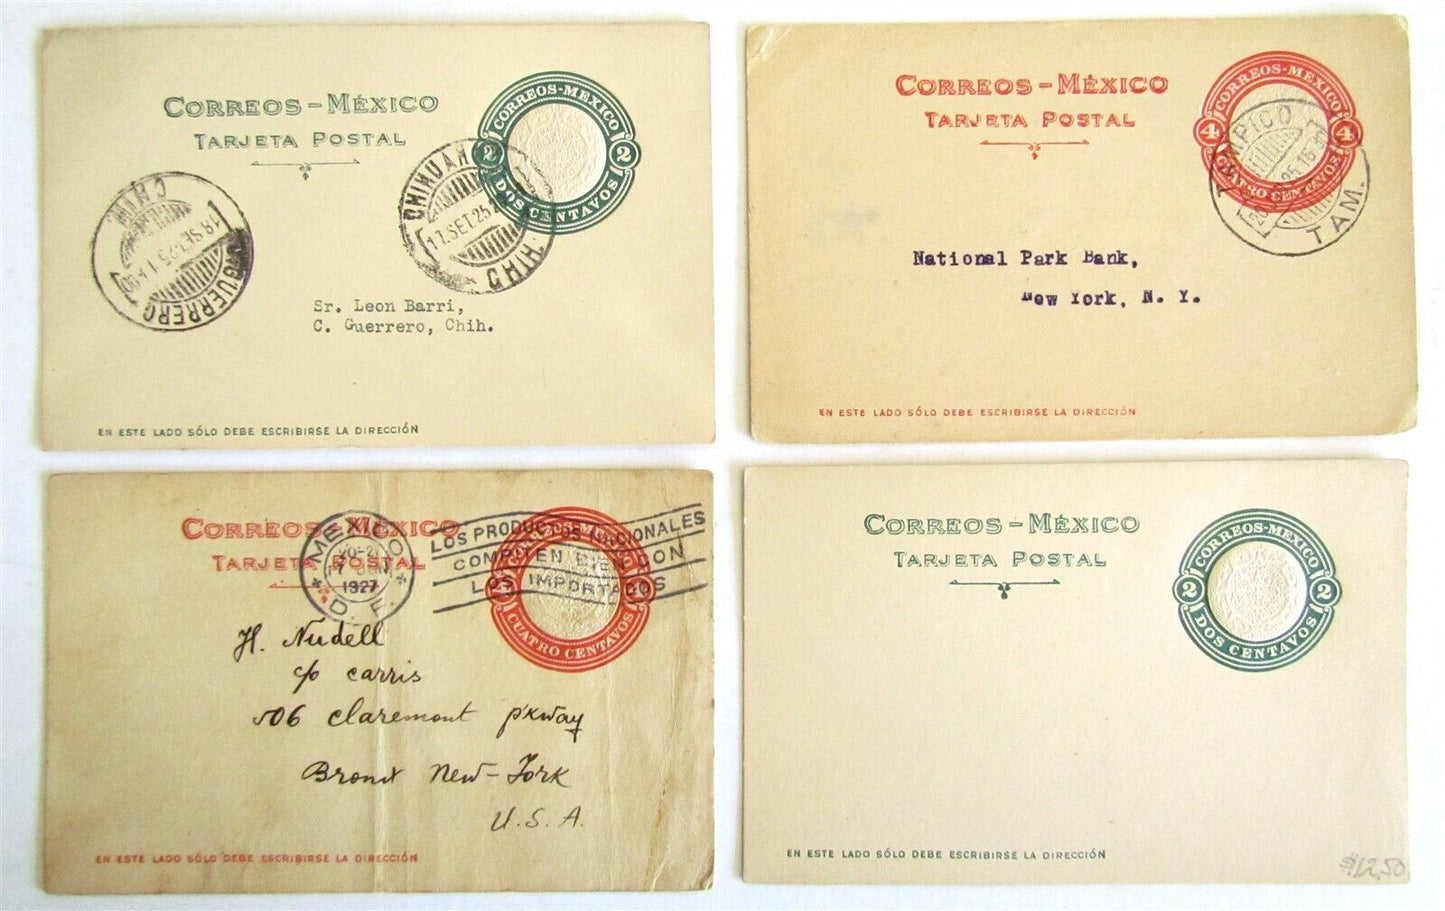 CORREOS - MÉXICO
TARJETA POSTAL
CORREOS-MEXICO
2 2
DOS CENTAVOS
CHIHUAH
17.SET.25
CHIH.
CHIH
18 SET 25
GUERRERO
Sr. Leon Barri,
C. Guerrero, Chih.
EN ESTE LADO SÓLO DEBE ESCRIBIRSE LA DIRECCIÓN
CORREOS - MÉXICO
TARJETA POSTAL
CORREOS-MEXICO
4 4
CUATRO CENTAVOS
TAMPICO
TAM.
National Park Bank,
New York, N. Y.
EN ESTE LADO SÓLO DEBE ESCRIBIRSE LA DIRECCIÓN
CORREOS - MÉXICO
TARJETA POSTAL
CORREOS-MEXICO
CUATRO CENTAVOS
MEXICO
1927
D. F.
LOS PRODUCTOS NACIONALES
COMPITEN BIEN CON
LOS IMPORTADOS
H. Nudell
c/o carris
506 claremont p'kway
Bronx New-York
U.S.A.
EN ESTE LADO SÓLO DEBE ESCRIBIRSE LA DIRECCIÓN
CORREOS - MÉXICO
TARJETA POSTAL
CORREOS-MEXICO
2 2
DOS CENTAVOS
EN ESTE LADO SÓLO DEBE ESCRIBIRSE LA DIRECCIÓN
$12,50